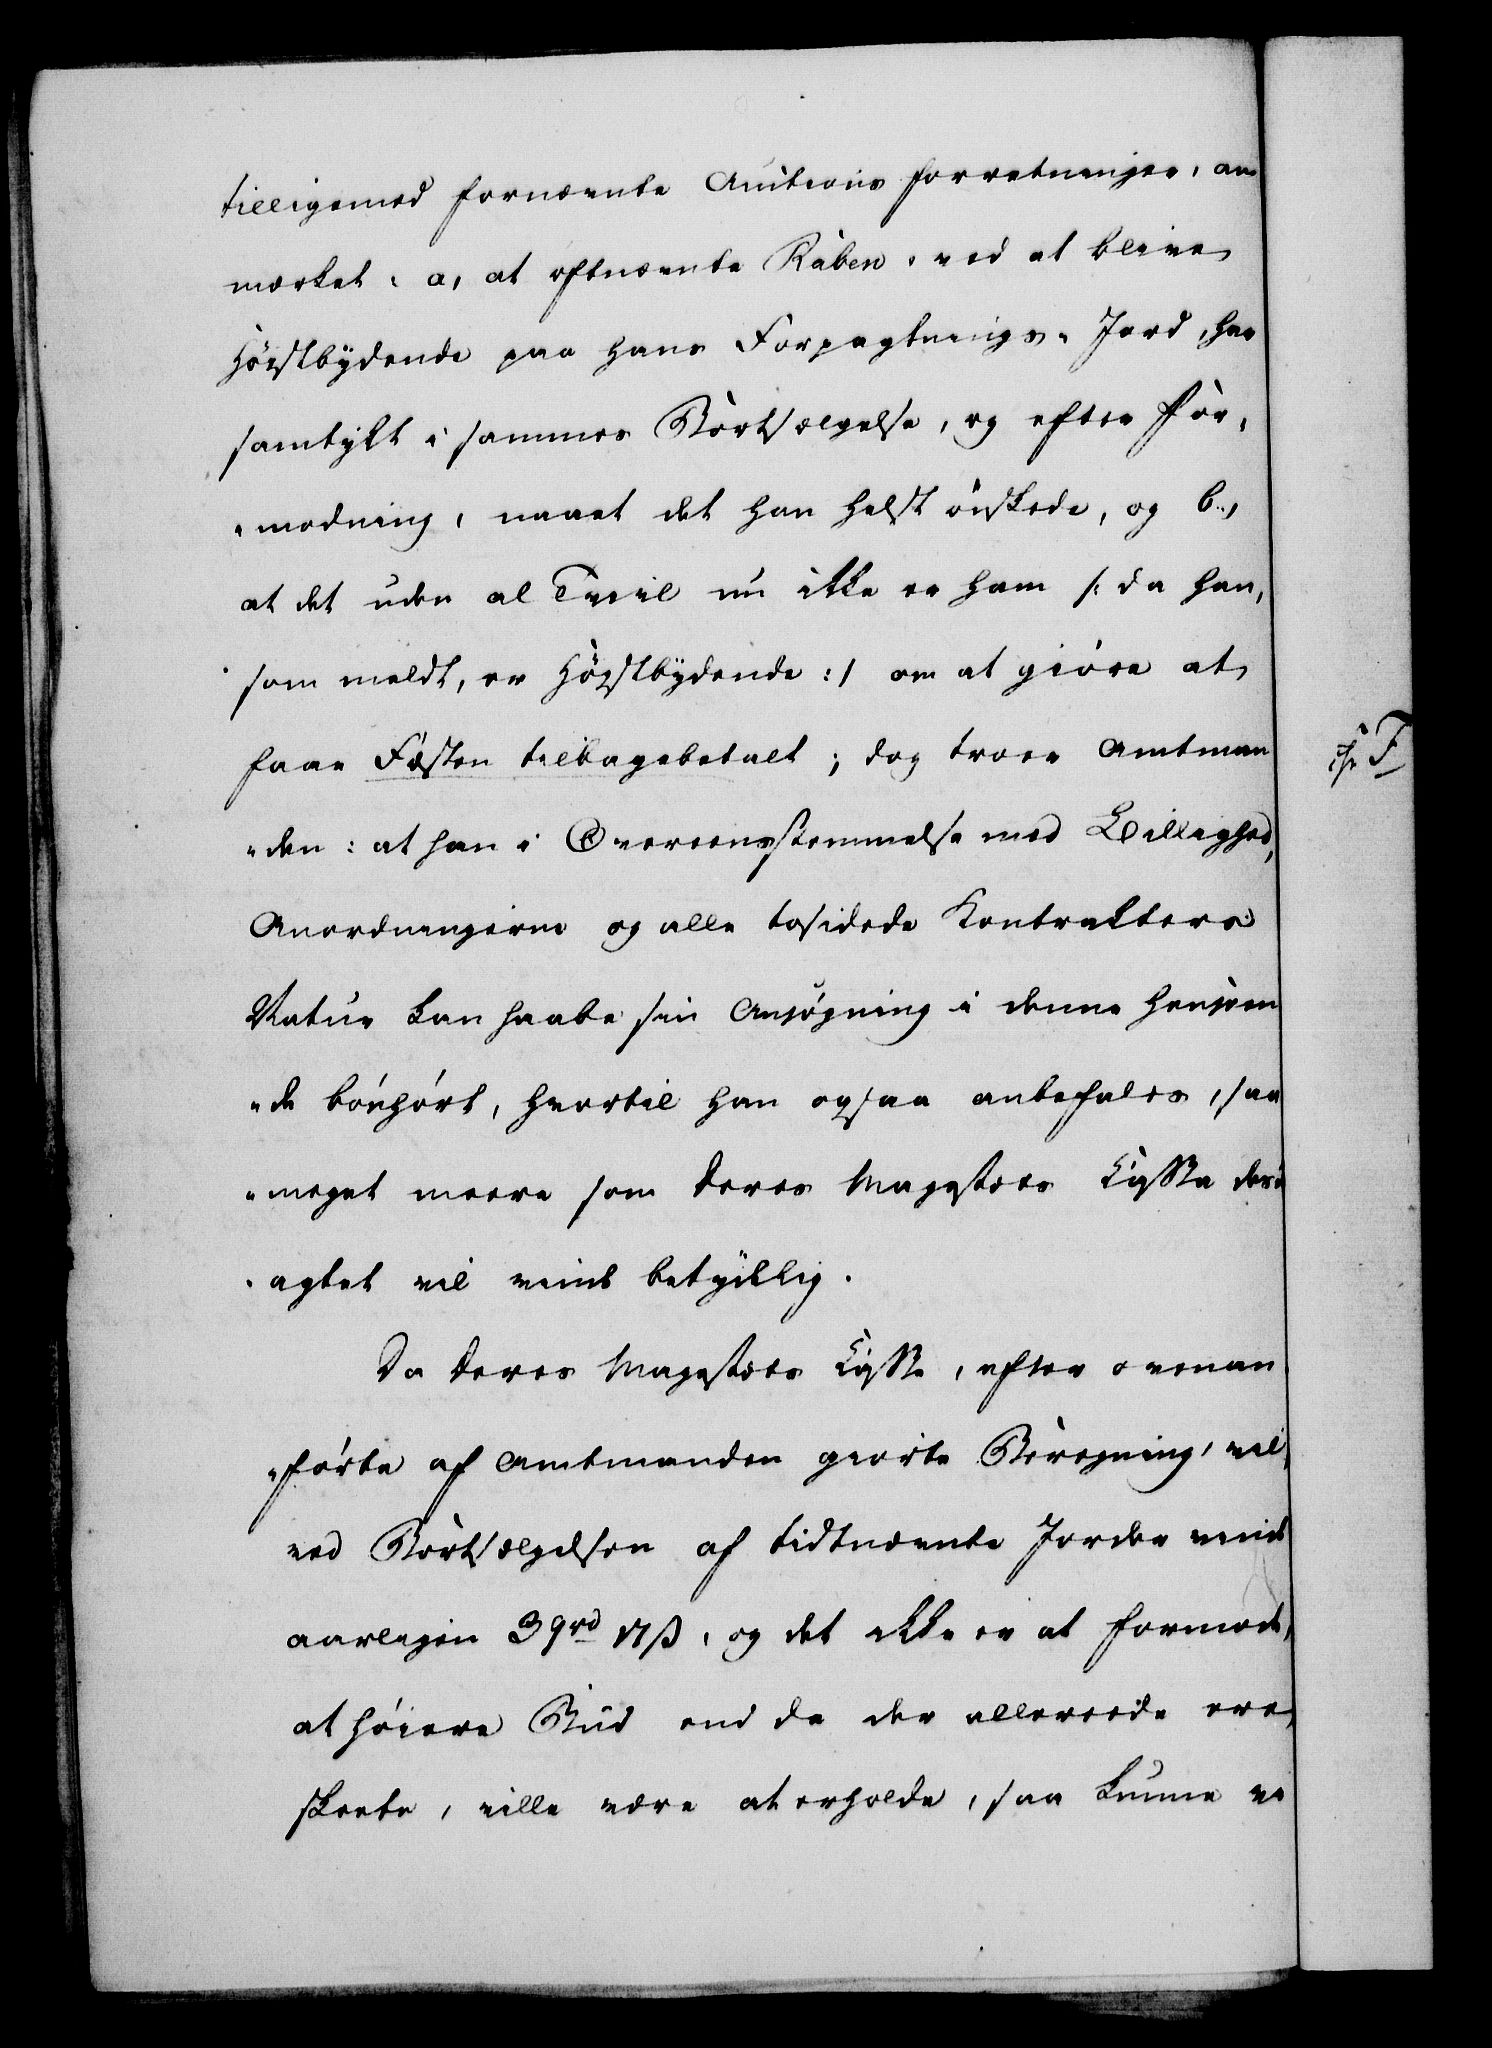 tilligemed fornævnte Auctions forretninger, an
mærket: a, at oftnævnte Raben, ved at blive
Höistbÿdende paa hans Forpagtnings-Jord, har
samtÿkt i sammes Bortsælgelse, og efter for,
"modning, naaet det han helst önskede, og b.,
at det uden al Tvivl nu ikke er ham /: da han,
som meldt, er Höistbÿdende :/ om at giöre at
faae Fæsten tilbagebetalt; dog troer Amtman
"den: at han i Overeensstemmelse med Billighed,
Anordningerne og alle tosidede Kontrakters
Natur kan haabe sin Ansögning i denne Henseen
"de bönhört, hvortil han ogsaa anbefales, saa
"meget meere som Deres Majestæts Kasse deri
agtet vil vinde betÿdelig.
Da Deres Majestæts Kasse, efter ovenan
"förte af Amtmanden giorte Beregning, vil,
ved Bortsælgelsen af tidtnævnte Jorder vinde
aarligen 39 rd 17 ß, og det ikke er at formode,
at höiere Bud end de der allereede ere
skeete, ville være at erholde, saa kunne vi
F